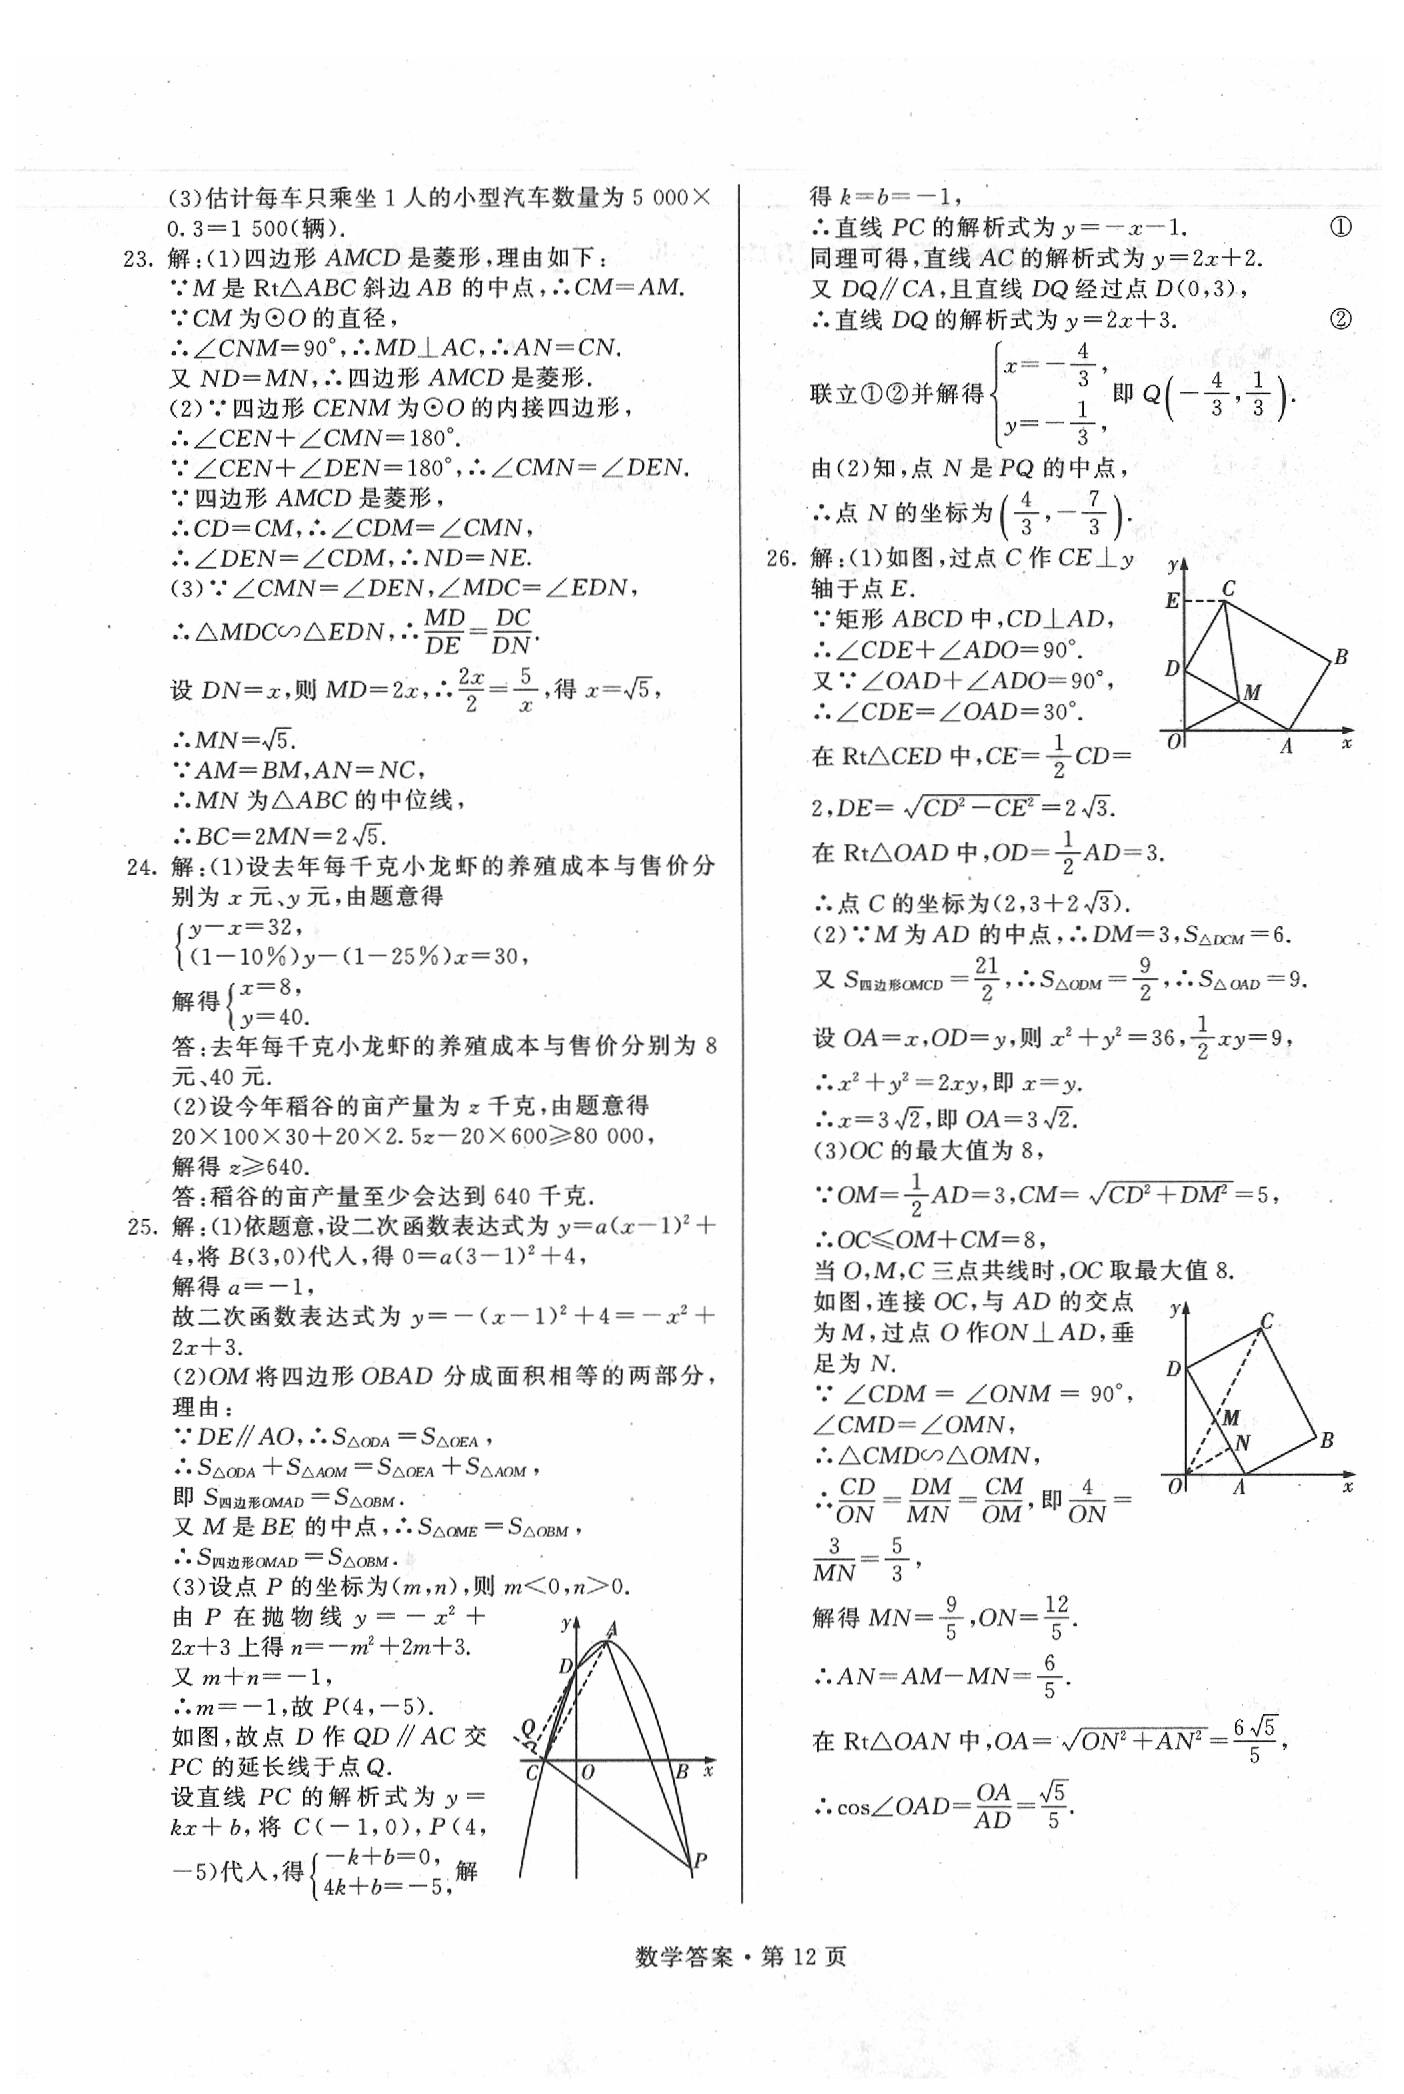 (3)估计每车只乘坐1人的小型汽车数量为5 000×
0.3=1 500(辆).
23. 解:(1)四边形AMCD是菱形,理由如下:
∵M是Rt△ABC斜边AB的中点,∴CM=AM.
∵CM为⊙O的直径,
∴∠CNM=90°,∴MD⊥AC,∴AN=CN.
又ND=MN,∴四边形AMCD是菱形.
(2)∵四边形CENM为⊙O的内接四边形,
∴∠CEN+∠CMN=180°.
∵∠CEN+∠DEN=180°,∴∠CMN=∠DEN.
∵四边形AMCD是菱形,
∴CD=CM,∴∠CDM=∠CMN,
∴∠DEN=∠CDM,∴ND=NE.
(3)∵∠CMN=∠DEN,∠MDC=∠EDN,
∴△MDC∽△EDN,∴MD/DE=DC/DN.
设DN=x,则MD=2x,∴2x/2=5/x,得x=√5,
∴MN=√5.
∵AM=BM,AN=NC,
∴MN为△ABC的中位线,
∴BC=2MN=2√5.
24. 解:(1)设去年每千克小龙虾的养殖成本与售价分
别为x元、y元,由题意得
{y-x=32,
(1-10%)y-(1-25%)x=30,
解得{x=8,
y=40.
答:去年每千克小龙虾的养殖成本与售价分别为8
元、40元.
(2)设今年稻谷的亩产量为z千克,由题意得
20×100×30+20×2.5z-20×600≥80 000,
解得z≥640.
答:稻谷的亩产量至少会达到640千克.
25. 解:(1)依题意,设二次函数表达式为y=a(x-1)²+
4,将B(3,0)代人,得0=a(3-1)²+4,
解得a=-1,
故二次函数表达式为y=-(x-1)²+4=-x²+
2x+3.
(2)OM将四边形OBAD分成面积相等的两部分,
理由:
∵DE∥AO,∴S△ODA=S△OEA,
∴S△ODA+S△AOM=S△OEA+S△AOM,
即S四边形OMAD=S△OBM.
又M是BE的中点,∴S△OME=S△OBM,
∴S四边形OMAD=S△OBM.
(3)设点P的坐标为(m,n),则m<0,n>0.
由P在抛物线y=-x²+
2x+3上得n=-m²+2m+3.
又m+n=-1,
∴m=-1,故P(4,-5).
如图,故点D作QD∥AC交
PC的延长线于点Q.
设直线PC的解析式为y=
kx+b,将C(-1,0),P(4,
-5)代人,得{-k+b=0,
4k+b=-5,解
y
A
D
Q
C
O
B
x
P
得k=b=-1,
∴直线PC的解析式为y=-x-1. ①
同理可得,直线AC的解析式为y=2x+2.
又DQ∥CA,且直线DQ经过点D(0,3),
∴直线DQ的解析式为y=2x+3. ②
联立①②并解得{x=-4/3,
y=-1/3, 即Q(-4/3,1/3).
由(2)知,点N是PQ的中点,
∴点N的坐标为(4/3,-7/3).
26. 解:(1)如图,过点C作CE⊥y
轴于点E.
∵矩形ABCD中,CD⊥AD,
∴∠CDE+∠ADO=90°.
又∵∠OAD+∠ADO=90°,
∴∠CDE=∠OAD=30°.
在Rt△CED中,CE=1/2CD=
2,DE=√(CD²-CE²)=2√3.
y
E
C
D
B
M
O
A
x
在Rt△OAD中,OD=1/2AD=3.
∴点C的坐标为(2,3+2√3).
(2)∵M为AD的中点,∴DM=3,S△DCM=6.
又S四边形OMCD=21/2,∴S△ODM=9/2,∴S△OAD=9.
设OA=x,OD=y,则x²+y²=36,1/2xy=9,
∴x²+y²=2xy,即x=y.
∴x=3√2,即OA=3√2.
(3)OC的最大值为8,
∵OM=1/2AD=3,CM=√(CD²+DM²)=5,
∴OC≤OM+CM=8,
当O,M,C三点共线时,OC取最大值8.
如图,连接OC,与AD的交点
为M,过点O作ON⊥AD,垂
足为N.
∵∠CDM=∠ONM=90°,
∠CMD=∠OMN,
∴△CMD∽△OMN,
∴CD/ON=DM/MN=CM/OM,即4/ON=
3/MN=5/3,
y
C
D
M
N
B
O
A
x
解得MN=9/5,ON=12/5.
∴AN=AM-MN=6/5.
在Rt△OAN中,OA=√(ON²+AN²)=6√5/5,
∴cos∠OAD=OA/AD=√5/5.
数学答案·第12页